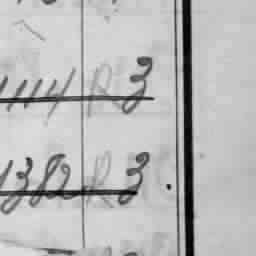 1114 R 3
1382 R 3.